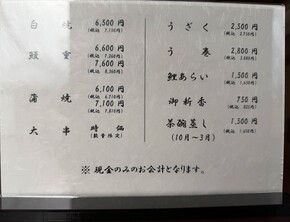 白焼 6,500円
(税込 7,150円)
鰻重 6,600円
7,600円
8,600円
蒲焼 6,100円
(税込 6,710円)
7,100円
(税込 7,810円)
大串 時価
(数量限定)
うざく 2,500円
(税込 2,750円)
う巻 2,800円
(税込 3,080円)
鯉あらい 1,500円
(税込 1,650円)
御新香 750円
(税込 825円)
茶碗蒸し 1,500円
(10月〜3月) (税込 1,650円)
※ 現金のみのお会計となります。